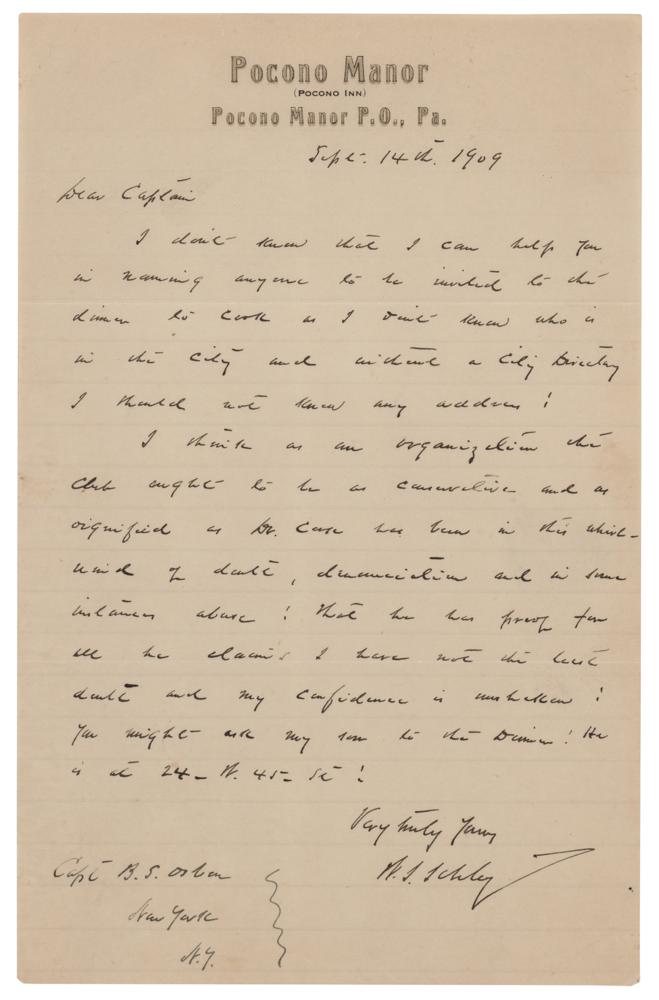 Pocono Manor
(Pocono Inn)
Pocono Manor P.O., Pa.
Sept. 14th. 1909
Dear Captain
I don't know that I can help you
in naming anyone to be invited to the
dinner to Cook as I don't know who is
in the City and without a City Directory
I should not know any address!
I think as an organization the
club ought to be as conservative and as
dignified as Dr. Cook has been in this whirl-
wind of doubt, denunciation and in some
instances abuse! That he has proof for
all he claims I have not the least
doubt and my confidence is unshaken!
You might ask my son to the Dinner! He
is at 24- W. 45- St!
Very truly Yours
W.S. Schley
Capt B.S. Osbon
New York
N.Y.